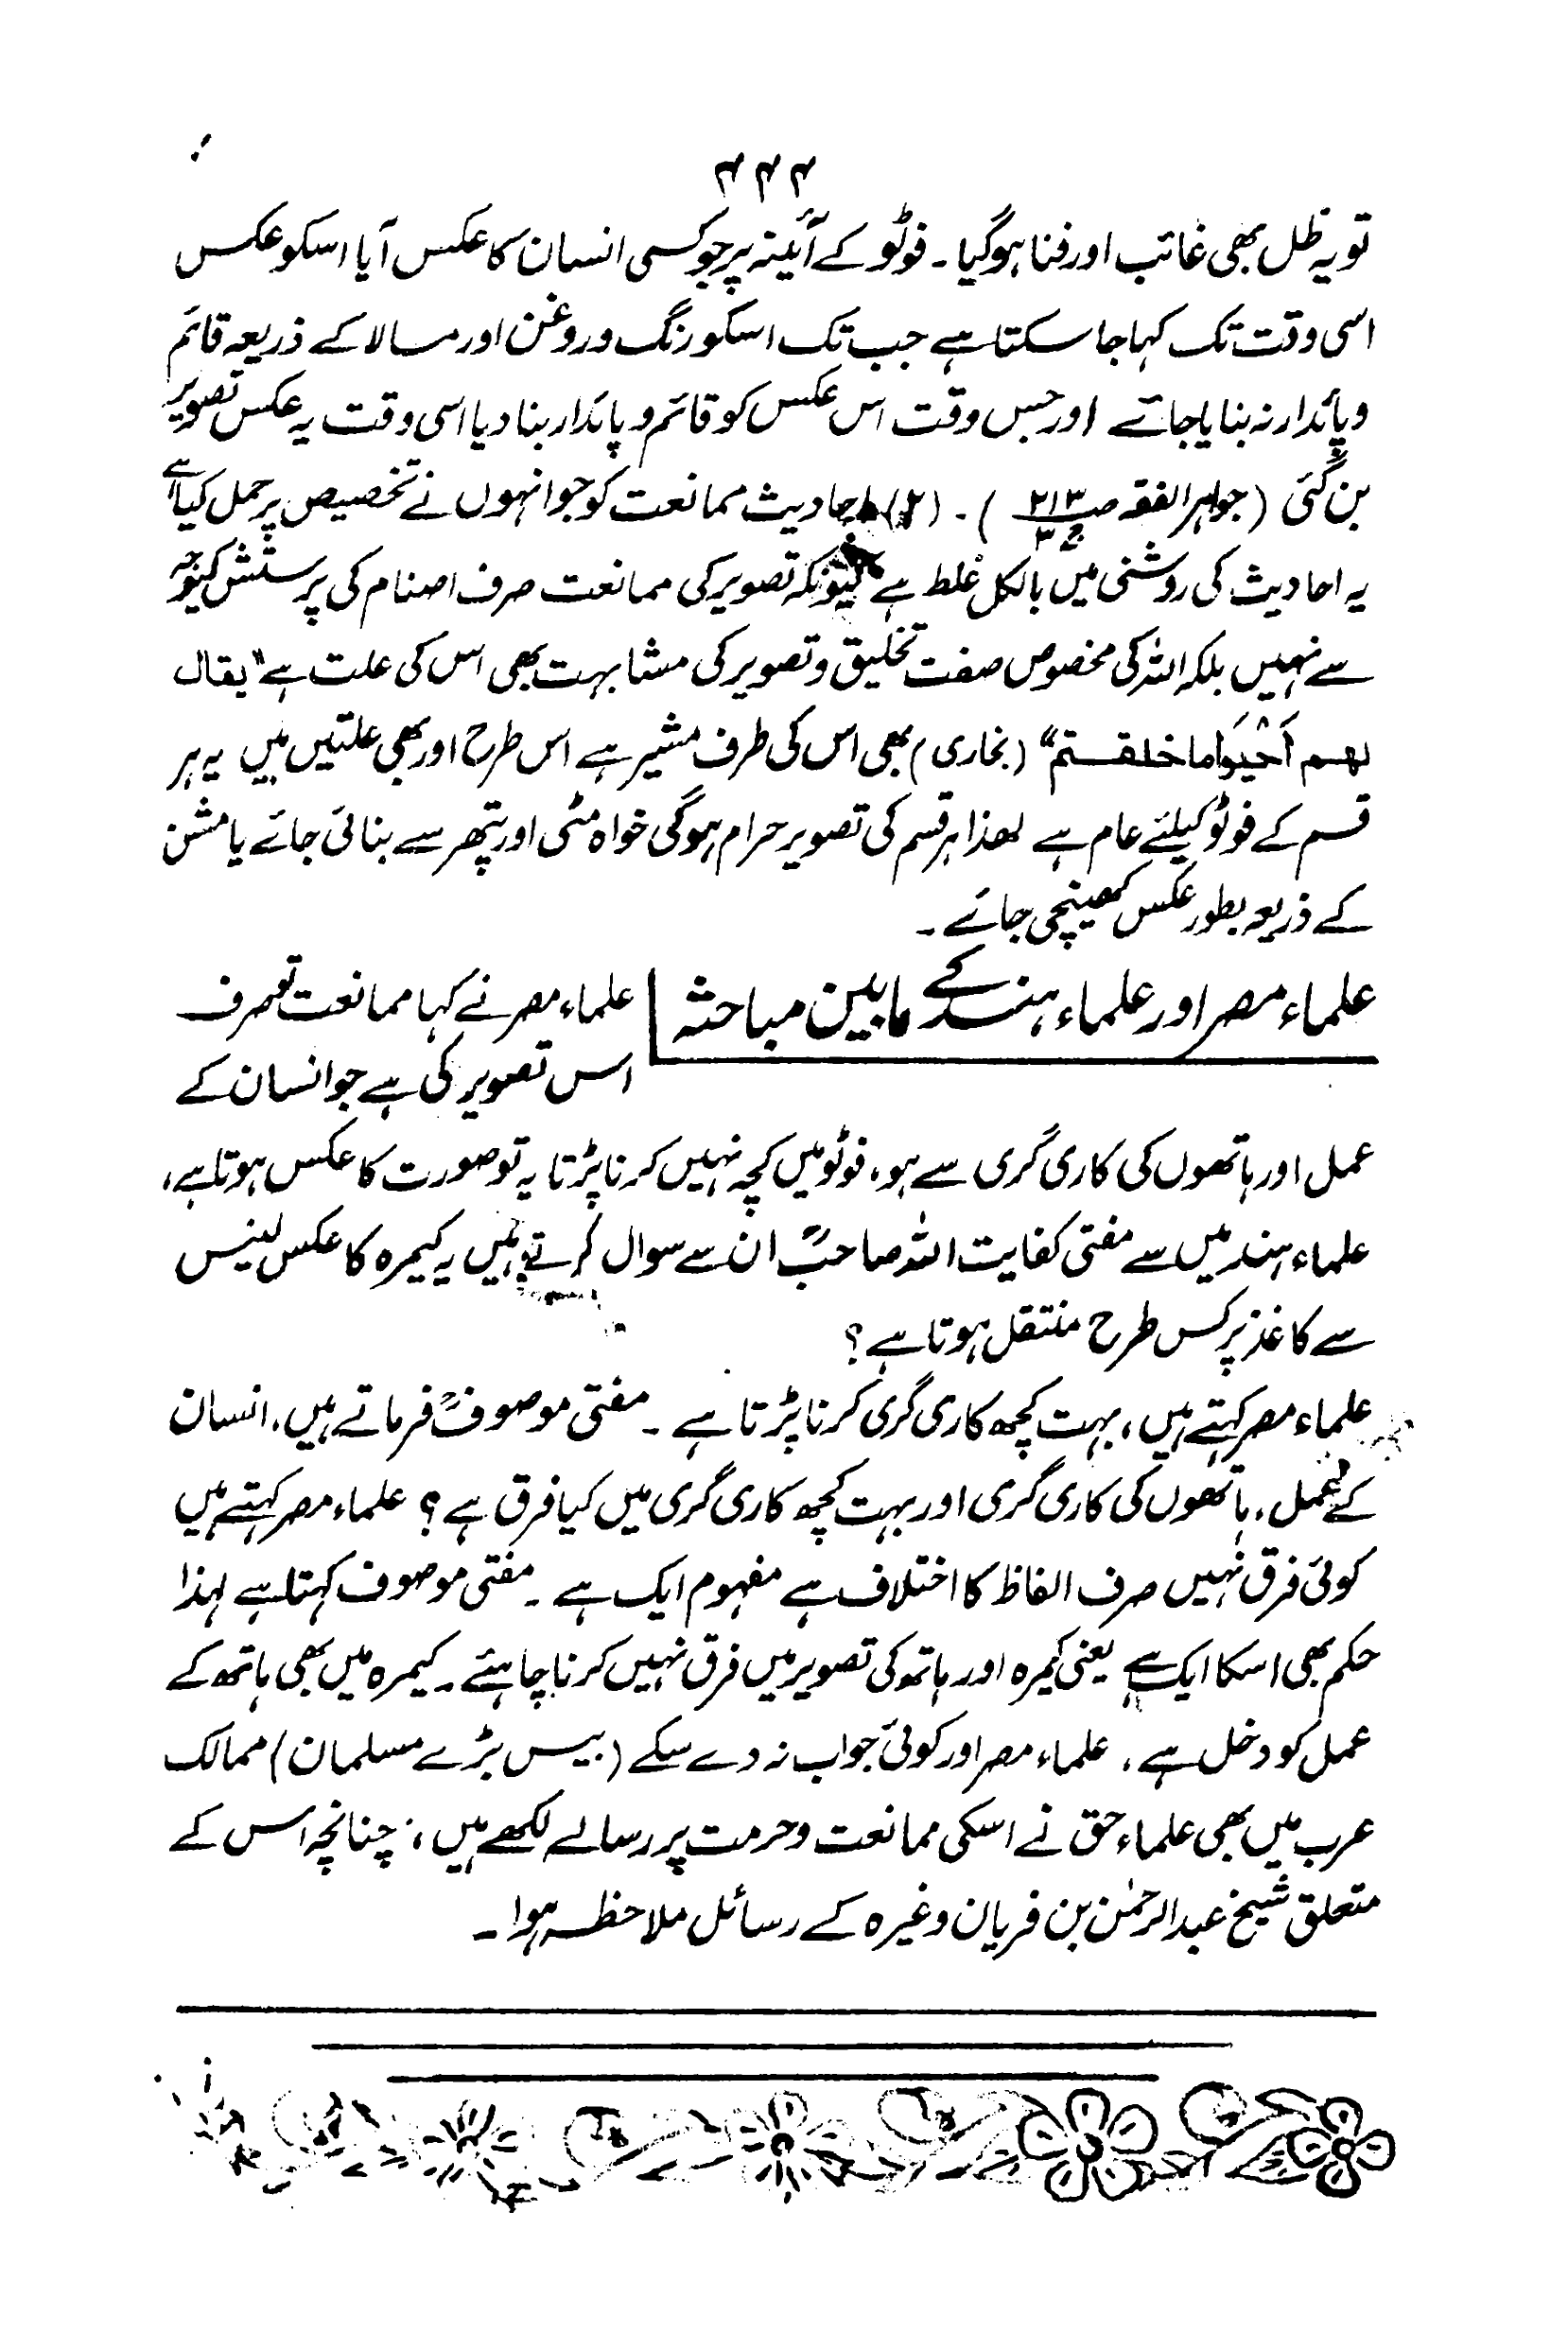 ۴۴۴
تو یہ ظل بھی غائب اور فنا ہوگیا ۔ فوٹو کے آئینہ پر جو کسی انسان کا عکس آیا اسکو عکس
اسی وقت تک کہا جا سکتا ہے جب تک اسکو رنگ و روغن اور مسالا کے ذریعہ قائم
و پائدار نہ بنایا جائے اور جس وقت اس عکس کو قائم و پائدار بنا دیا اسی وقت یہ عکس تصویر
بن گئی (جواہر الفقہ ص۲۱۳ ج۳ ) ۔ (۲) احادیث ممانعت کو جو انہوں نے تخصیص پر حمل کیا ہے
یہ احادیث کی روشنی میں بالکل غلط ہے کیونکہ تصویر کی ممانعت صرف اصنام کی پرستش کیوجہ
سے نہیں بلکہ اللہ کی مخصوص صفت تخلیق و تصویر کی مشابہت بھی اس کی علت ہے "یقال
لھم اَحْیُوا ما خلقتم" (بخاری) بھی اس کی طرف مشیر ہے اس طرح اور بھی علتیں ہیں یہ ہر
قسم کے فوٹو کیلئے عام ہے لھذا ہر قسم کی تصویر حرام ہوگی خواہ مٹی اور پتھر سے بنائی جائے یا مشن
کے ذریعہ بطور عکس کھینچی جائے ۔
علماء مصر اور علماء ہند کے مابین مباحثہ | علماء مصر نے کہا ممانعت تو صرف
اس تصویر کی ہے جو انسان کے
عمل اور ہاتھوں کی کاری گری سے ہو، فوٹو میں کچہ نہیں کرنا پڑتا یہ تو صورت کا عکس ہوتا ہے،
علماء ہند میں سے مفتی کفایت اللہ صاحبؒ ان سے سوال کرتے ہیں یہ کیمرہ کا عکس لینس
سے کاغذ پر کس طرح منتقل ہوتا ہے ؟
علماء مصر کہتے ہیں، بہت کچھ کاری گری کرنا پڑتا ہے ۔ مفتی موصوفؒ فرماتے ہیں، انسان
کے عمل، ہاتھوں کی کاری گری اور بہت کچھ کاری گری میں کیا فرق ہے ؟ علماء مصر کہتے ہیں
کوئی فرق نہیں صرف الفاظ کا اختلاف ہے مفہوم ایک ہے ۔ مفتی موصوف کہتا ہے لہذا
حکم بھی اسکا ایک ہے یعنی کیمرہ اور ہاتھ کی تصویر میں فرق نہیں کرنا چاہئے ۔ کیمرہ میں بھی ہاتھ کے
عمل کو دخل ہے، علماء مصر اور کوئی جواب نہ دے سکے (بیس بڑے مسلمان) ممالک
عرب میں بھی علماء حق نے اسکی ممانعت و حرمت پر رسالے لکھے ہیں، چنانچہ اس کے
متعلق شیخ عبدالرحمٰن بن فریان وغیرہ کے رسائل ملاحظہ ہوا ۔